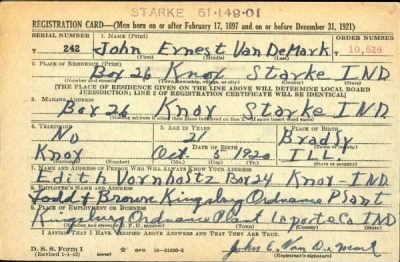 STARKE 51-149-01
REGISTRATION CARD—(Men born on or after February 17, 1897 and on or before December 31, 1921)
SERIAL NUMBER 1. NAME (Print) ORDER NUMBER
T 242 John Ernest Van DeMark 10,626
(First) (Middle) (Last)
2. PLACE OF RESIDENCE (Print)
Box 26 Knox Starke IND
(Number and street) (Town, township, village, or city) (County) (State)
[THE PLACE OF RESIDENCE GIVEN ON THE LINE ABOVE WILL DETERMINE LOCAL BOARD
JURISDICTION; LINE 2 OF REGISTRATION CERTIFICATE WILL BE IDENTICAL]
3. MAILING ADDRESS
Box 26 Knox Starke IND
4. TELEPHONE 5. AGE IN YEARS 6. PLACE OF BIRTH
No 21 Bradly
DATE OF BIRTH (Town or county)
Knox Oct 1920 ILL.
(Exchange) (Number) (Mo.) (Day) (Yr.) (State or country)
7. NAME AND ADDRESS OF PERSON WHO WILL ALWAYS KNOW YOUR ADDRESS
Edith Vornholtz Box 24 Knox IND
8. EMPLOYER'S NAME AND ADDRESS
Todd & Brown Kingsbury Ordnance Plant
9. PLACE OF EMPLOYMENT OR BUSINESS
Kingsbury Ordnance Plant Laporte Co IND
(County) (State)
I AFFIRM THAT I HAVE VERIFIED ABOVE ANSWERS AND THAT THEY ARE TRUE.
D. S. S. Form 1
(Revised 1-1-42) (over) John E. Van De Mark